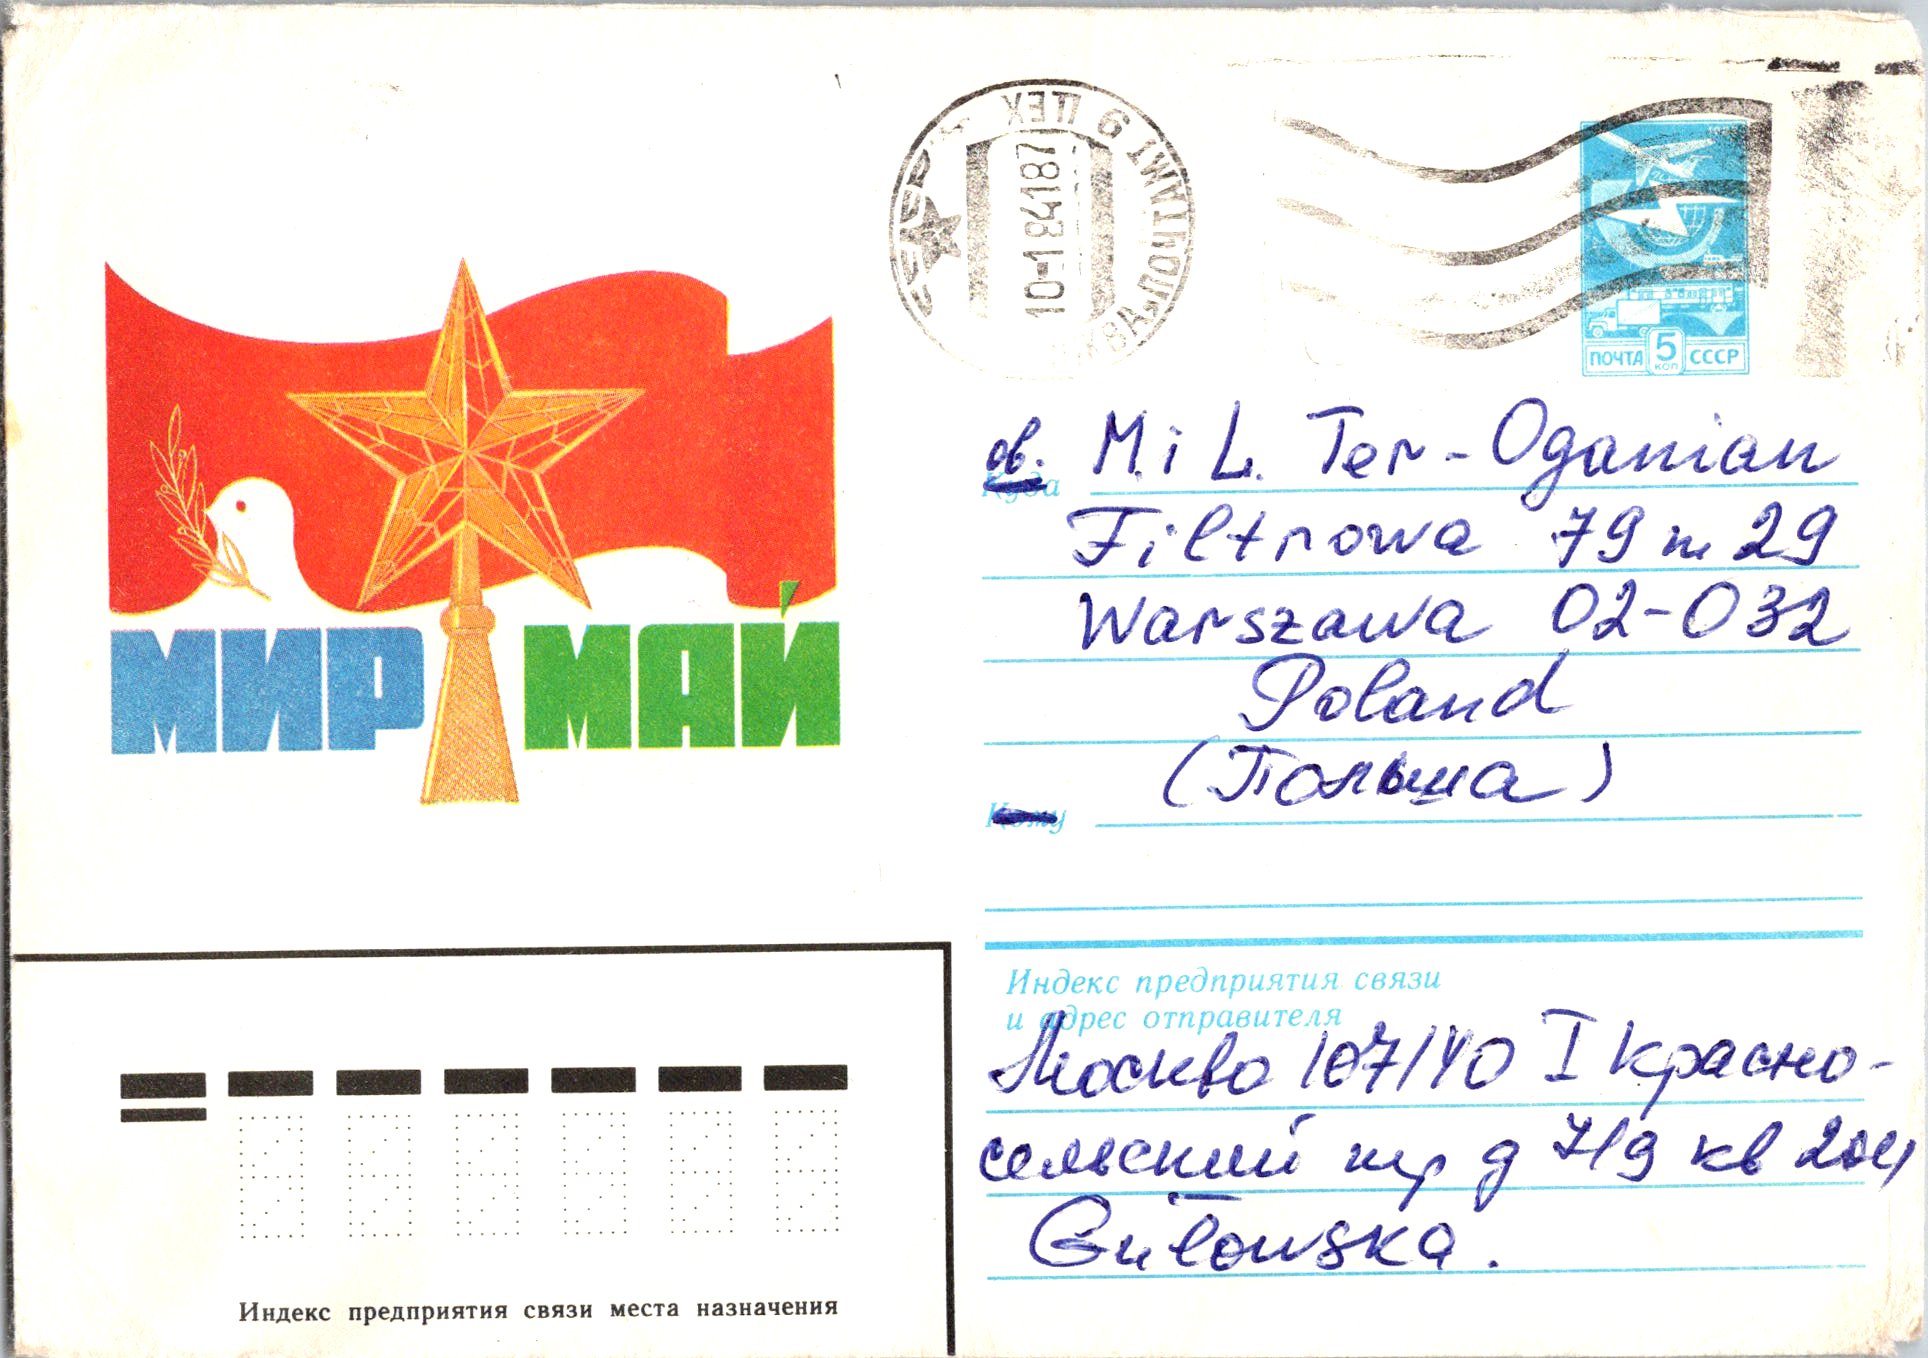 МИР МАЙ
ЦЕХ 6
10-1 84 18
1982
ПОЧТА 5 КОП СССР
Куда
ob. M. i L. Ter-Oganian
Filtrowa 79 m 29
Warszawa 02-032
Poland
(Польша)
Кому
Индекс предприятия связи
и адрес отправителя
Москва 107140 I Красно-
сельский пер д 7/9 кв 204
Gutowska.
Индекс предприятия связи места назначения